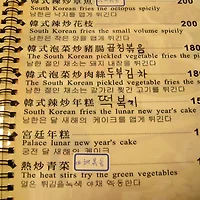 韓式辣炒章魚 200
South Korean fries the octopus spicily
남한은 낙지를 맵게 튀긴다
韓式辣炒花枝 200
South Korean fries the small volume spicily
남한은 작은 양을 맵게 튀긴다
韓式泡菜炒豬腸 곱창볶음 180
The South Korean pickled vegetable fries pig
남한은 절인 야채는 돼지 창자를
韓式泡菜炒肉絲 두부김치
The South Korean pickled vegetable fries s
남한은 절인 야채는
韓式辣炒年糕 떡볶끼
South Korean fries the lunar new year's cake
남한은 달 새해의 케이크를 맵게 튀긴다
宮廷年糕
Palace lunar new year's cake 1
궁전 달 새해의 케이크
熱炒青菜
The heat stirs fry the green vegetables
열은 튀김을녹색 야채 격동한다